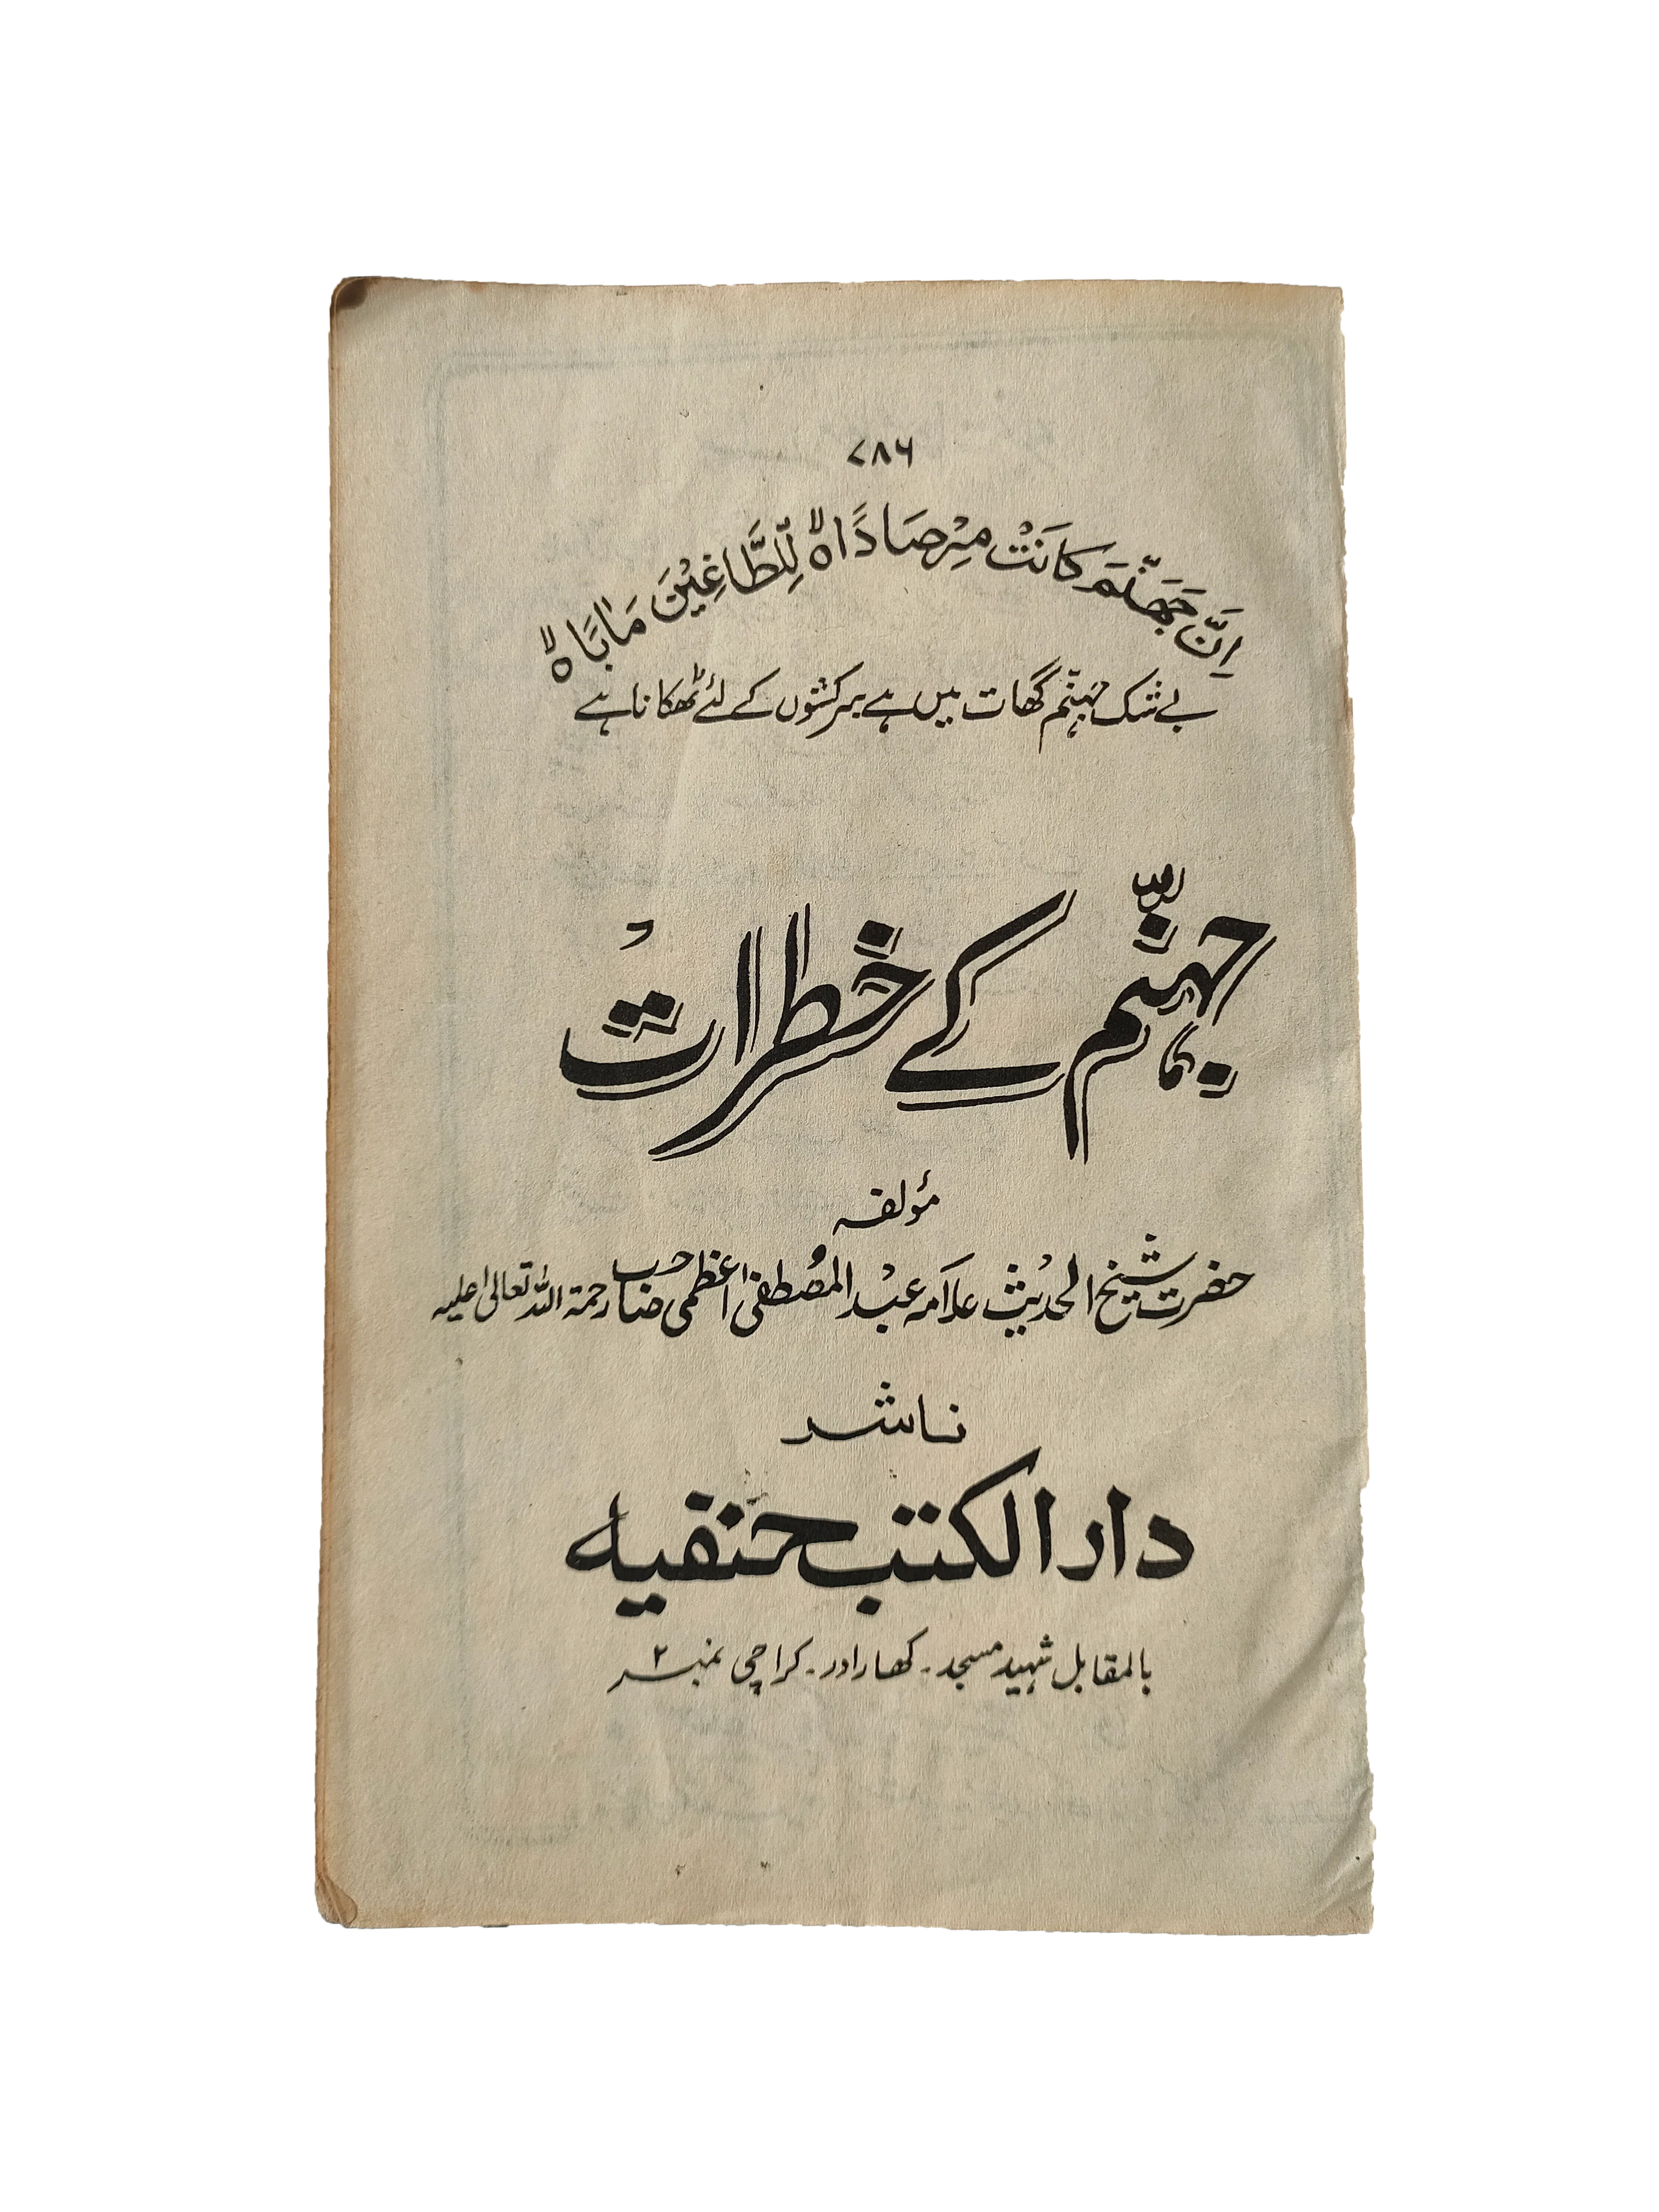 ۷۸۶
اِنَّ جَهَنَّمَ كَانَتْ مِرْصَادًا ۙ لِّلطَّاغِيْنَ مَاٰبًا ۙ
بے شک جہنّم گھات میں ہے سرکشوں کے لئے ٹھکانا ہے
جہنّم کے خطرات
مؤلفہ
حضرت شیخ الحدیث علامہ عبد المصطفیٰ اعظمی صاحب رحمۃ اللہ تعالیٰ علیہ
ناشر
دارالکتب حنفیہ
بالمقابل شہید مسجد۔ کھارادر۔ کراچی نمبر ۲